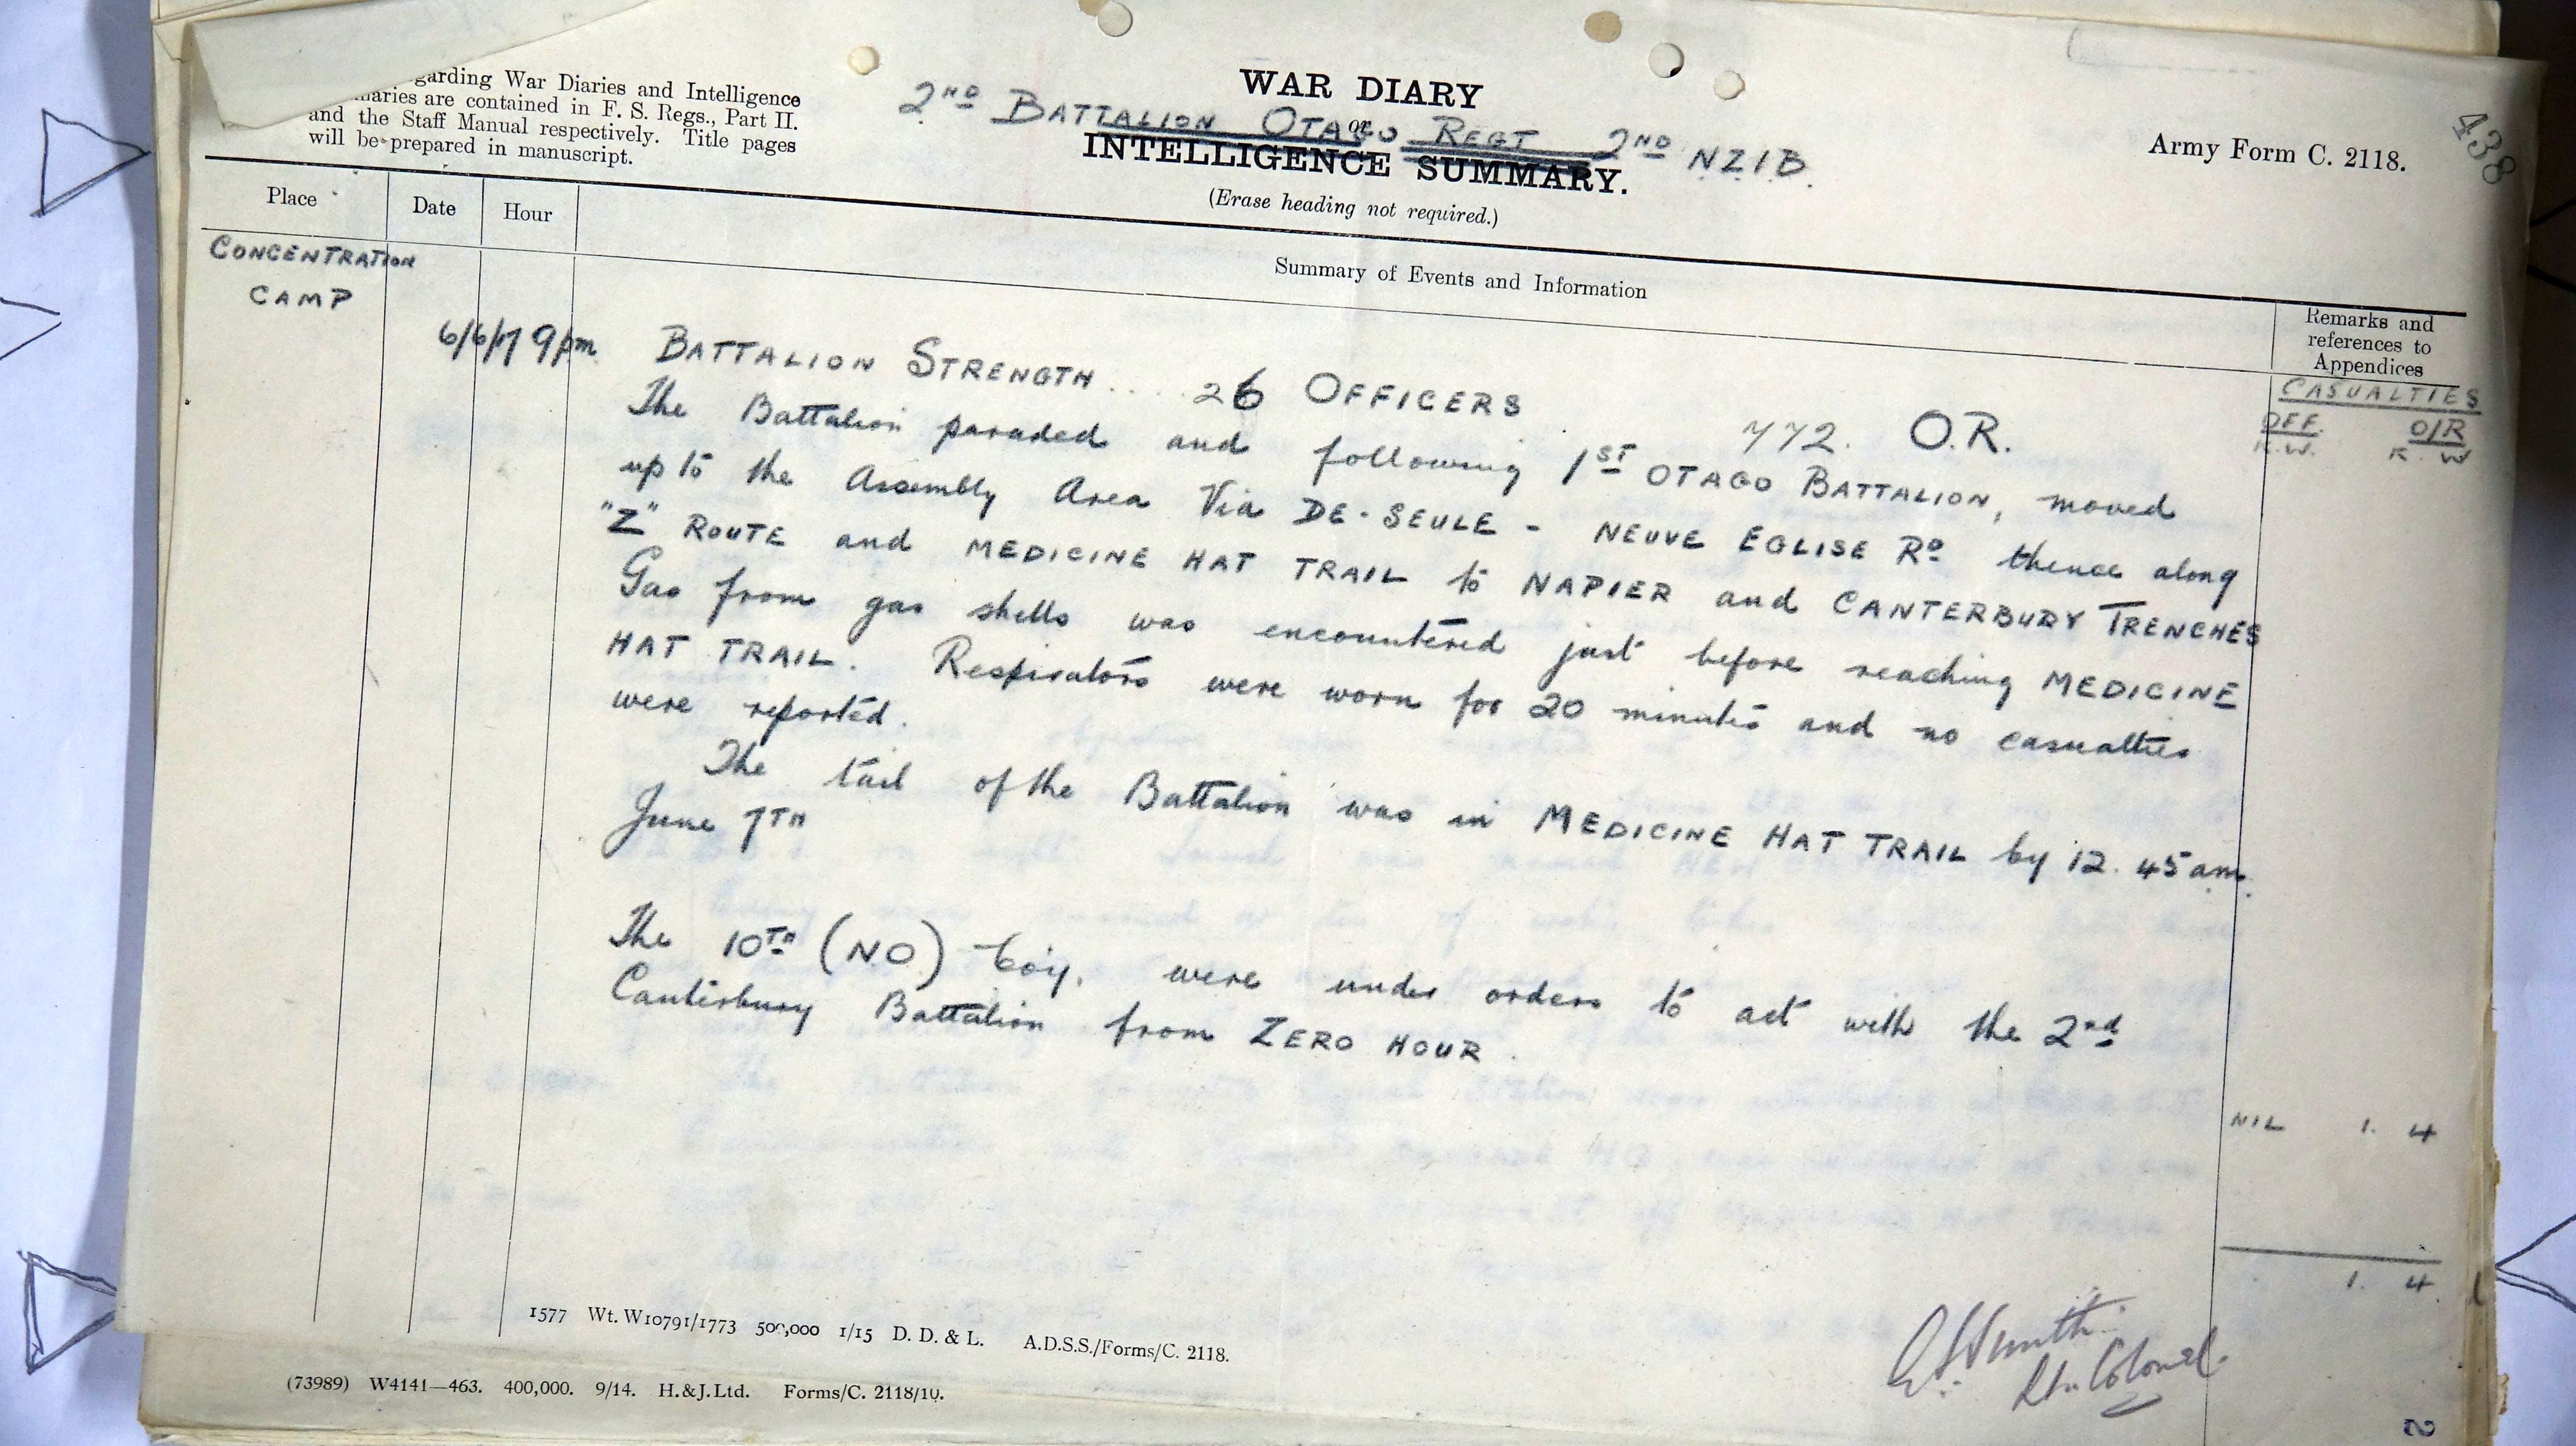 garding War Diaries and Intelligence
maries are contained in F. S. Regs., Part II.
and the Staff Manual respectively. Title pages
will be prepared in manuscript.
WAR DIARY
or
2ND BATTALION OTAGO REGT 2ND NZIB.
INTELLIGENCE SUMMARY.
(Erase heading not required.)
Army Form C. 2118.
438
Place
Date
Hour
Summary of Events and Information
Remarks and
references to
Appendices
CONCENTRATION
CAMP
6/6/17 9pm
BATTALION STRENGTH .... 26 OFFICERS
772. O.R.
The Battalion paraded and following 1ST OTAGO BATTALION, moved
up to the Assembly Area Via DE-SEULE - NEUVE EGLISE RD thence along
"Z" ROUTE and MEDICINE HAT TRAIL to NAPIER and CANTERBURY TRENCHES
Gas from gas shells was encountered just before reaching MEDICINE
HAT TRAIL. Respirators were worn for 20 minutes and no casualties
were reported.
The tail of the Battalion was in MEDICINE HAT TRAIL by 12.45 am.
June 7TH
The 10TH (N.O) Coy. were under orders to act with the 2nd
Canterbury Battalion from ZERO HOUR.
CASUALTIES
OFF. O/R
K.W. K. W
NIL 1. 4
1. 4.
Smith
Lt. Colonel.
1577 Wt. W10791/1773 500,000 1/15 D. D. & L. A.D.S.S./Forms/C. 2118.
(73989) W4141—463. 400,000. 9/14. H.&J.Ltd. Forms/C. 2118/10.
2